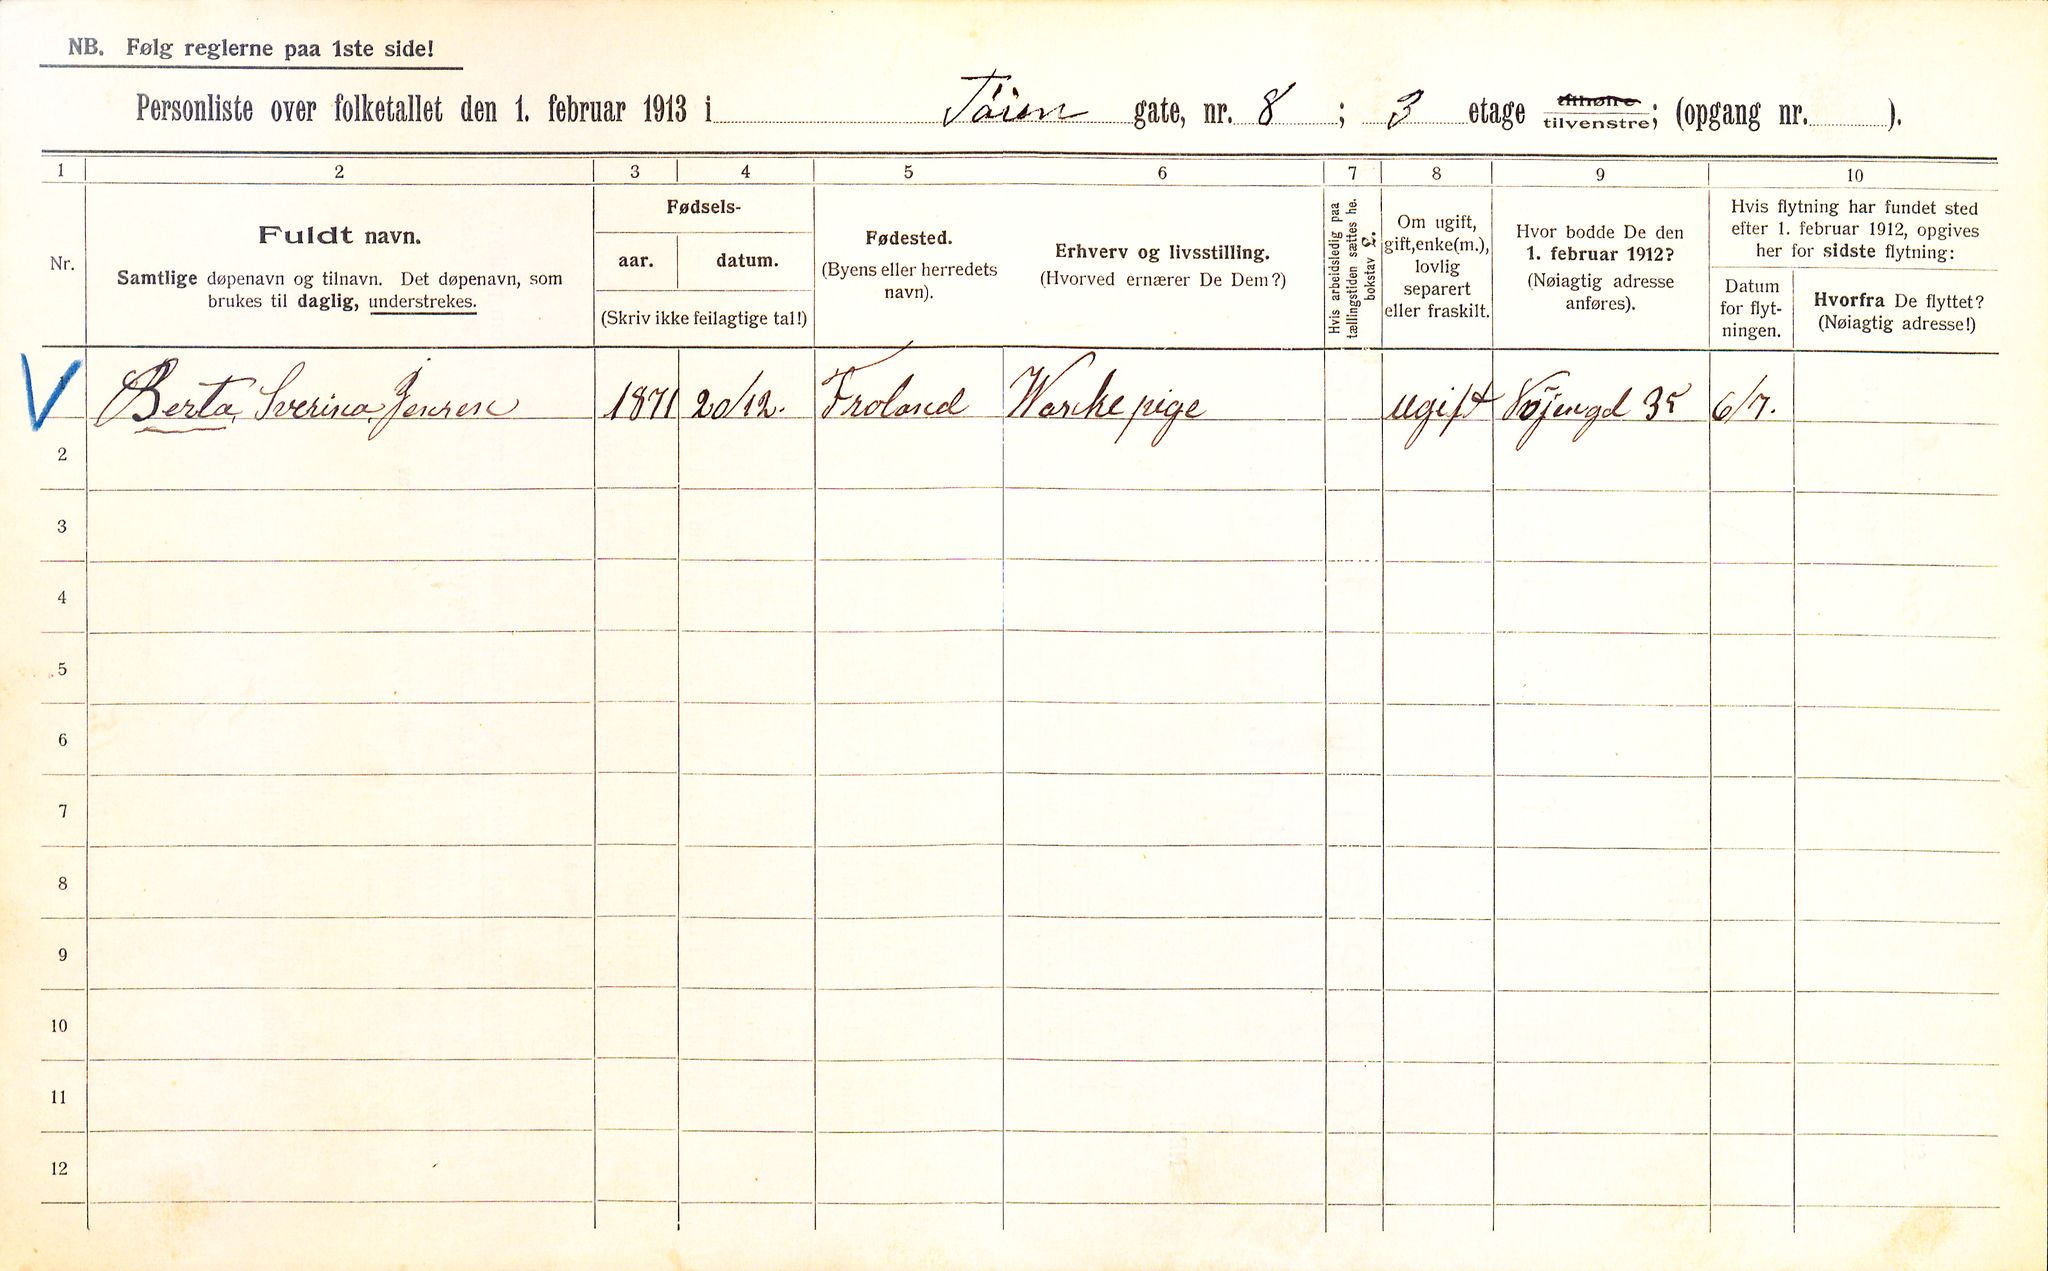 NB. Følg reglerne paa 1ste side!
Personliste over folketallet den 1. februar 1913 i Töien gate, nr. 8 ; 3 etage tilhøire tilvenstre; (opgang nr. ).
1 2 3 4 5 6 7 8 9 10
Nr.
Fuldt navn.
Samtlige døpenavn og tilnavn. Det døpenavn, som
brukes til daglig, understrekes.
Fødsels-
aar. datum.
(Skriv ikke feilagtige tal!)
Fødested.
(Byens eller herredets
navn).
Erhverv og livsstilling.
(Hvorved ernærer De Dem?)
Hvis arbeidsledig paa
tællingstiden sættes he.
bokstav £.
Om ugift,
gift, enke(m.),
lovlig
separert
eller fraskilt.
Hvor bodde De den
1. februar 1912?
(Nøiagtig adresse
anføres).
Hvis flytning har fundet sted
efter 1. februar 1912, opgives
her for sidste flytning:
Datum
for flyt-
ningen.
Hvorfra De flyttet?
(Nøiagtig adresse!)
Berta Sverina Jensen 1871 20/12. Froland Waske pige ugift 35 6/7.
2
3
4
5
6
7
8
9
10
11
12